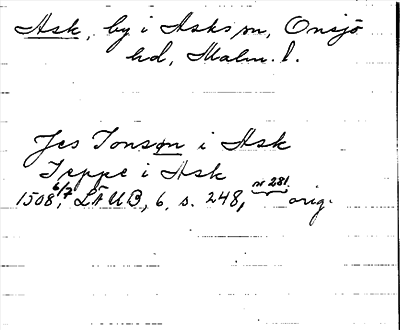 Ask, by i Asks sn, Onsjö
hd, Malm. l.
Jes Jonson i Ask
Jeppe i Ask
1508 6/7, LÄUB, 6, s. 248, nr 281 orig.